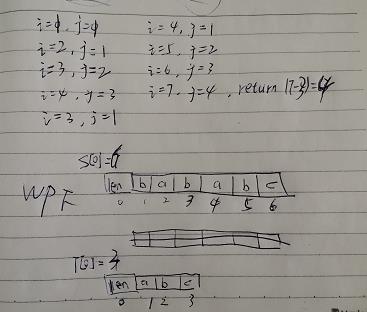 i=1, j=1
i=2, j=1
i=3, j=2
i=4, j=3
i=3, j=1
i=4, j=1
i=5, j=2
i=6, j=3
i=7, j=4, return i7-3|=4
S[0]=6
WPF
len b a b a b c
0 1 2 3 4 5 6
T[0]=3
len a b c
0 1 2 3